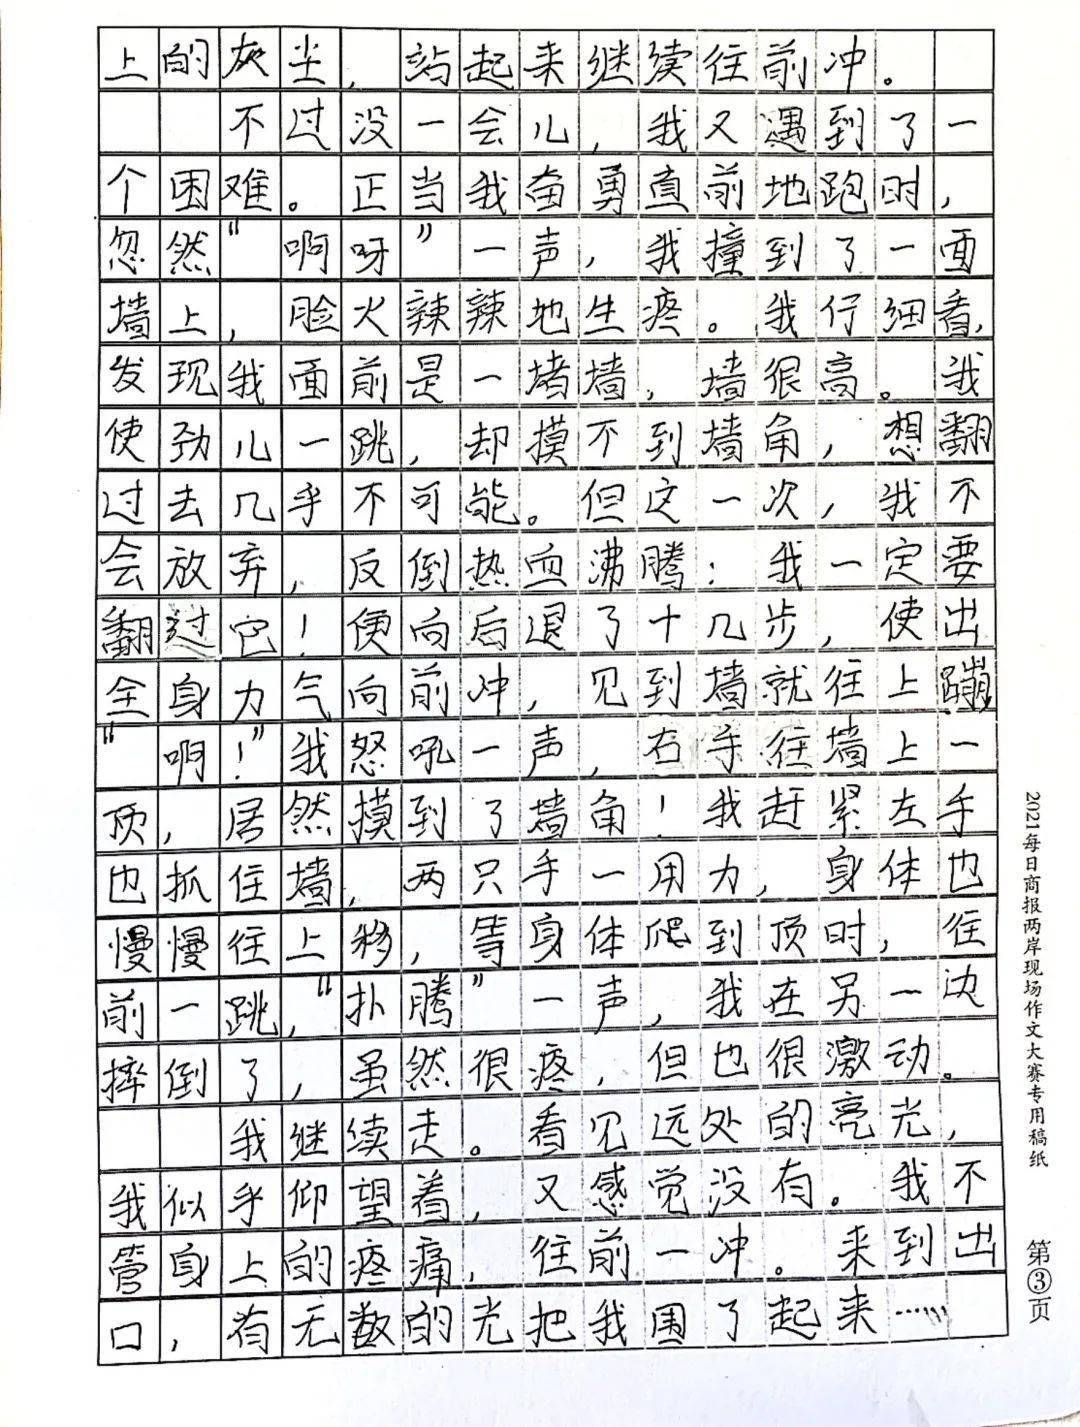 上的灰尘，站起来继续往前冲。
不过没一会儿，我又遇到了一
个困难。正当我奋勇直前地跑时，
忽然“啊呀”一声，我撞到了一面
墙上，脸火辣辣地生疼。我仔细看，
发现我面前是一堵墙，墙很高。我
使劲儿一跳，却摸不到墙角，想翻
过去几乎不可能。但这一次，我不
会放弃，反倒热血沸腾：我一定要
翻过它！便向后退了十几步，使出
全身力气向前冲，见到墙就往上蹦，
“啊！”我怒吼一声，右手往墙上一
顶，居然摸到了墙角！我赶紧左手
也抓住墙，两只手一用力，身体也
慢慢往上移，等身体爬到顶时，往
前一跳，“扑腾”一声，我在另一边
摔倒了，虽然很疼，但也很激动。
我继续走。看见远处的亮光，
我似乎仰望着，又感觉没有。我不
管身上的疼痛，往前一冲。来到出
口，有无数的光把我围了起来……
2021每日商报两岸现场作文大赛专用稿纸
第③页